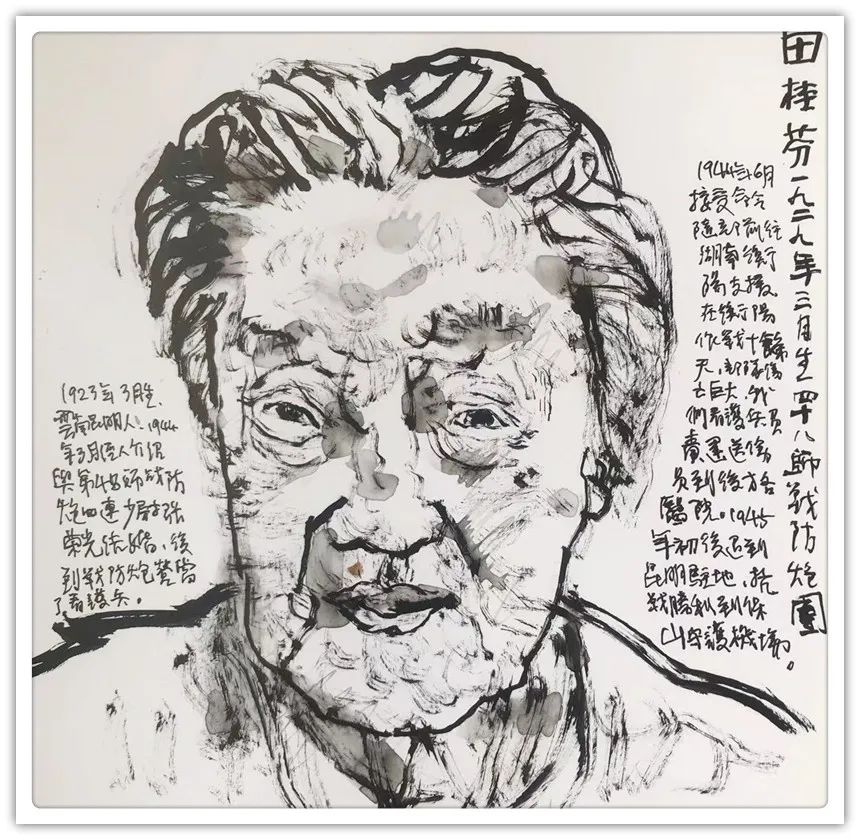 田桂芬一九二九年三月生四十八師戰防炮團
1944年6月
接受命令
隨部前往
湖南衡
陽支援
在衡陽
作戰十餘
天，部隊傷
亡巨大，我
們看護兵員
責運送傷
員到後方各
醫院。1945
年初後退到
昆明駐地，抗
戰勝利到保
山守護機場。
1923年3月生，
雲南昆明人。1944
年3月經人介紹
與第48師战防
炮四連少尉張
荣光结婚，後
到戰防炮營當
了看護兵。